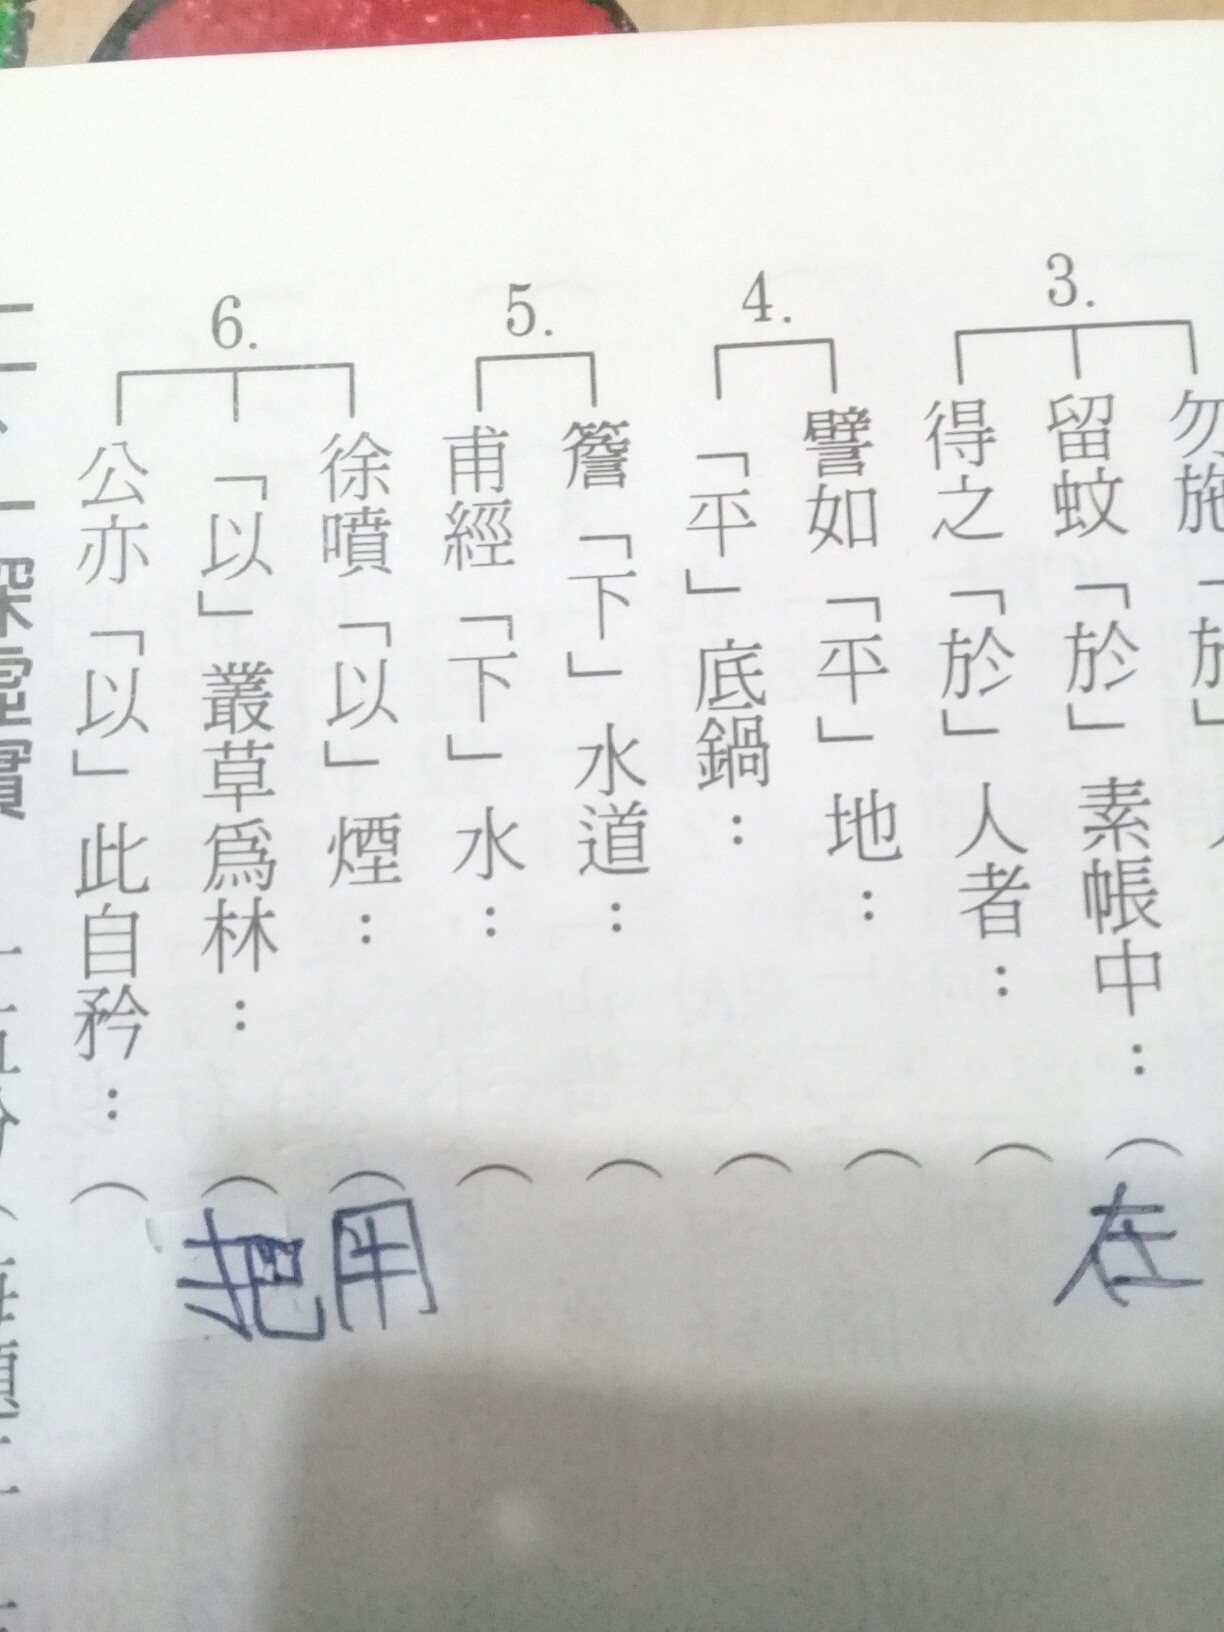 3.
勿施「於」
留蚊「於」素帳中：（在
得之「於」人者：（
4.
譬如「平」地：（
「平」底鍋：（
5.
簷「下」水道：（
甫經「下」水：（
6.
徐噴「以」煙：（用
「以」叢草為林：（把
公亦「以」此自矜：（